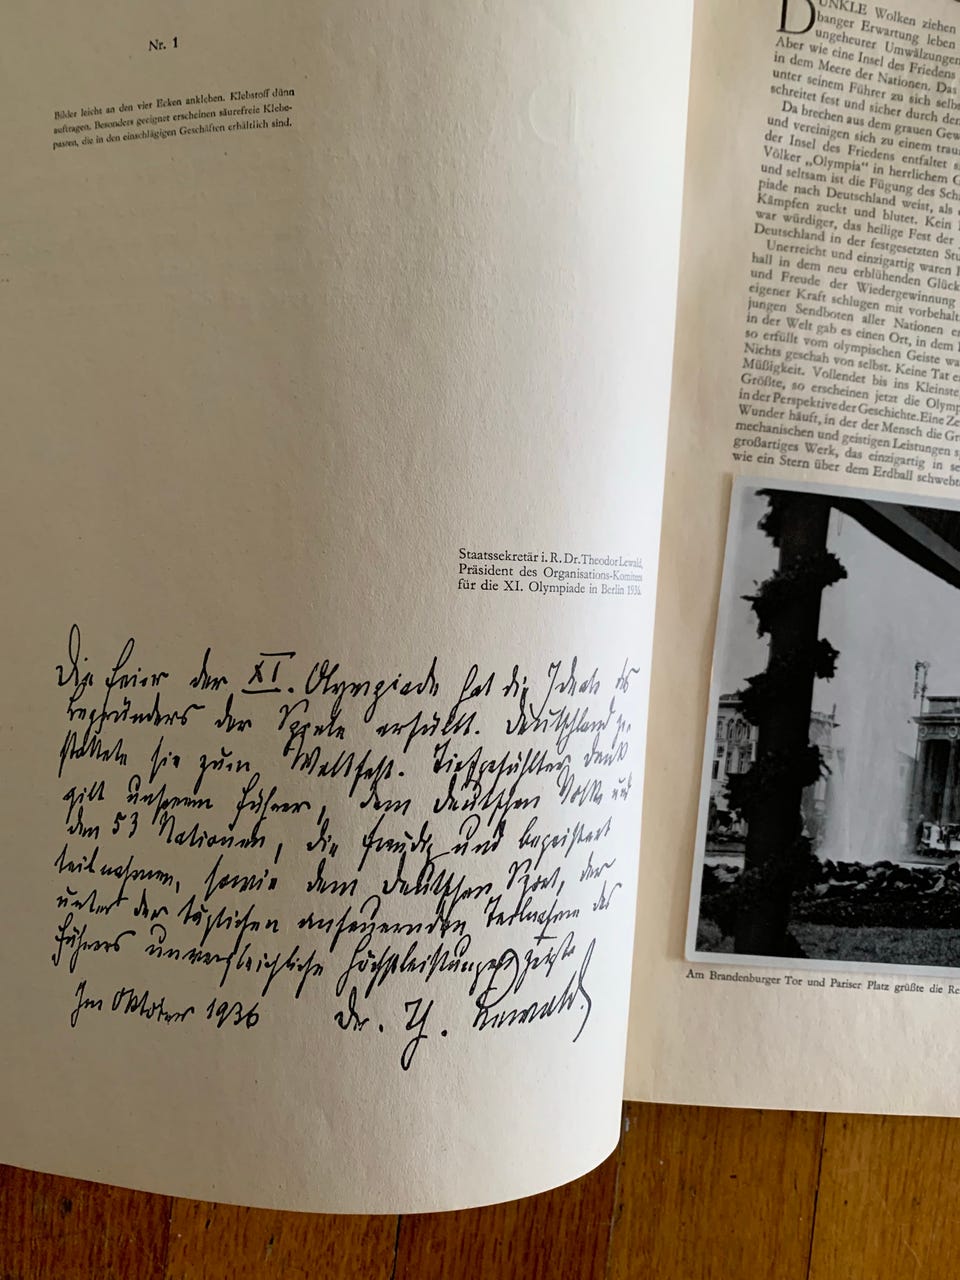 Nr. 1
Bilder leicht an den vier Ecken ankleben. Klebstoff dünn
auftragen. Besonders geeignet erscheinen säurefreie Klebe-
pasten, die in den einschlägigen Geschäften erhältlich sind.
Staatssekretär i. R. Dr. Theodor Lewald,
Präsident des Organisations-Komitees
für die XI. Olympiade in Berlin 1936.
Die Feier der XI. Olympiade hat die Ideale des
Begründers der Spiele erfüllt. Deutschland ge-
staltete sie zum Weltfest. Tiefgefühlter Dank
gilt unserem Führer, dem deutschen Volk und
den 53 Nationen, die freudig und begeistert
teilnahmen, sowie dem deutschen Sport, der
unter der täglichen anfeuernden Teilnahme des
Führers unvergleichliche Höchstleistungen zeigte
Im Oktober 1936 Dr. Th. Lewald
DUNKLE Wolken ziehen
banger Erwartung leben
ungeheurer Umwälzungen
Aber wie eine Insel des Friedens
in dem Meere der Nationen. Das
unter seinem Führer zu sich selbs
schreitet fest und sicher durch den
Da brechen aus dem grauen Gew
und vereinigen sich zu einem trau
der Insel des Friedens entfaltet s
Völker „Olympia“ in herrlichem G
und seltsam ist die Fügung des Sch
piade nach Deutschland weist, als
Kämpfen zuckt und blutet. Kein
war würdiger, das heilige Fest der
Deutschland in der festgesetzten Stu
Unerreicht und einzigartig waren
hall in dem neu erblühenden Glück
und Freude der Wiedergewinnung
eigener Kraft schlugen mit vorbehalt
jungen Sendboten aller Nationen e
in der Welt gab es einen Ort, in dem
so erfüllt vom olympischen Geiste wa
Nichts geschah von selbst. Keine Tat e
Müßigkeit. Vollendet bis ins Kleinste
Größte, so erscheinen jetzt die Olymp
in der Perspektive der Geschichte. Eine Ze
Wunder häuft, in der der Mensch die Gr
mechanischen und geistigen Leistungen s
großartiges Werk, das einzigartig in se
wie ein Stern über dem Erdball schwebt
Am Brandenburger Tor und Pariser Platz grüßte die Re